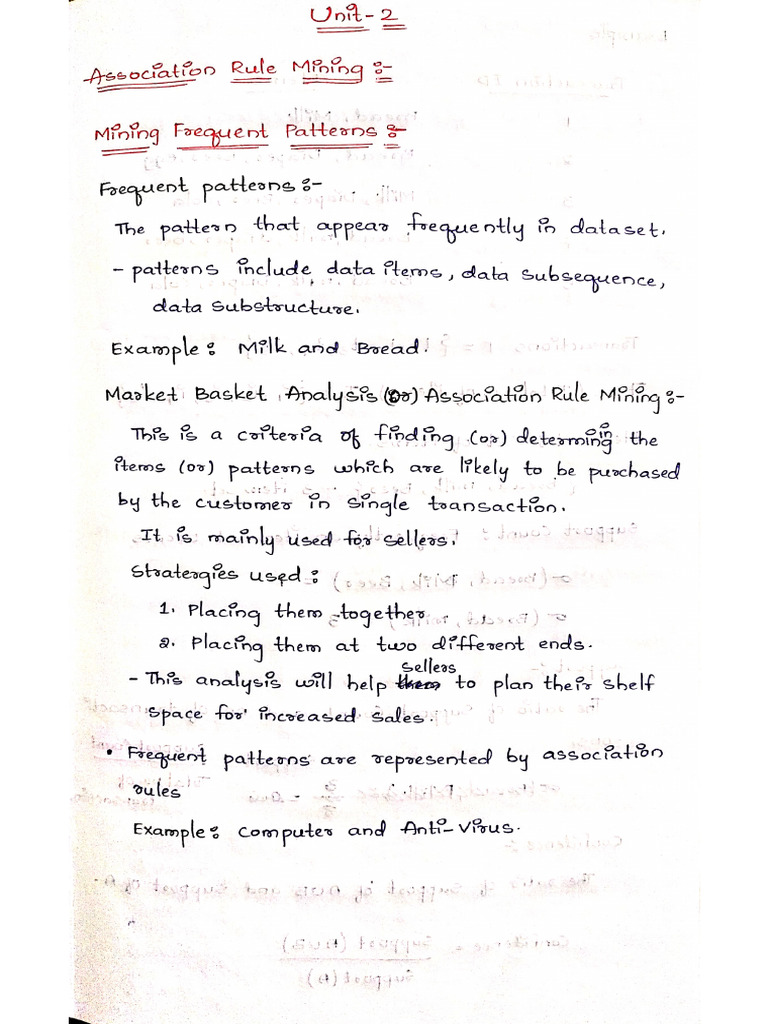 Unit-2
Association Rule Mining :-
Mining Frequent Patterns :-
Frequent patterns :-
The pattern that appear frequently in dataset.
- patterns include data items, data subsequence,
data substructure.
Example : Milk and Bread.
Market Basket Analysis (or) Association Rule Mining :-
This is a criteria of finding (or) determinin^in^g the
items (or) patterns which are likely to be purchased
by the customer in single transaction.
It is mainly used for sellers.
Stratergies used :
1. Placing them together
2. Placing them at two different ends.
- This analysis will help sellers to plan their shelf
space for increased sales.
• Frequent patterns are represented by association
rules
Example : Computer and Anti-Virus.